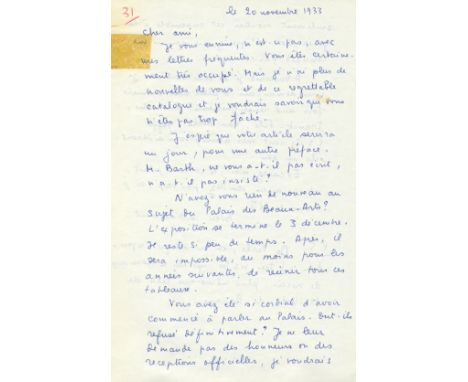 31
le 20 novembre 1933
Cher ami,
Je vous ennuie, n'est-ce pas, avec
mes lettres fréquentes. Vous êtes certaine-
ment très occupé. Mais je n'ai plus de
nouvelles de vous et de ce regrettable
catalogue et je voudrais savoir que vous
n'êtes pas trop fâché.
J'espère que votre article servira
un jour, pour une autre préface.
M. Barth, ne vous a-t-il pas écrit,
n'a-t-il pas insisté?
N'avez-vous rien de nouveau au
sujet du Palais des Beaux-Arts?
L'exposition se termine le 3 décembre.
Il reste si peu de temps. Après, il
sera impossible, au moins pour les
années suivantes, de réunir tous ces
tableaux.
Vous avez été si cordial d'avoir
commencé à parler au Palais. Ont-ils
refusé définitivement? Je ne leur
demande pas des honneurs ou des
réceptions officielles, je voudrais